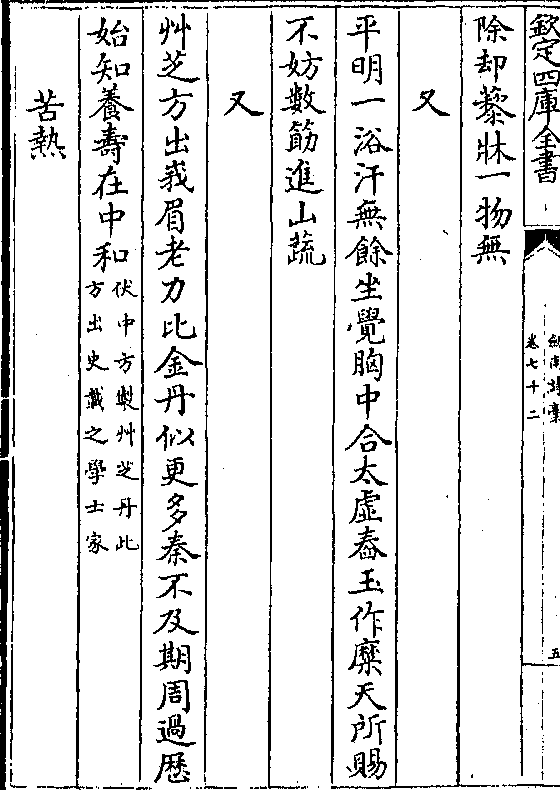 欽定四庫全書
劍南詩稾
卷七十二
五
除却藜牀一物無
又
平明一浴汗無餘坐覺胸中合太虛舂玉作糜天所賜
不妨數筯進山蔬
又
艸芝方出峩眉老力比金丹似更多秦不及期周過歴
始知養壽在中和伏中方製艸芝丹此
方出史載之學士家
苦熱